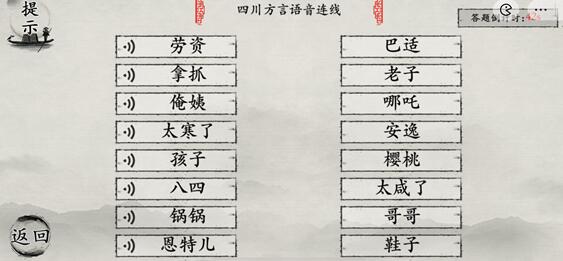 提示
四川方言语音连线
答题倒计时:42s
劳资 巴适
拿抓 老子
俺姨 哪吒
太寒了 安逸
孩子 樱桃
八四 太咸了
锅锅 哥哥
恩特儿 鞋子
返回